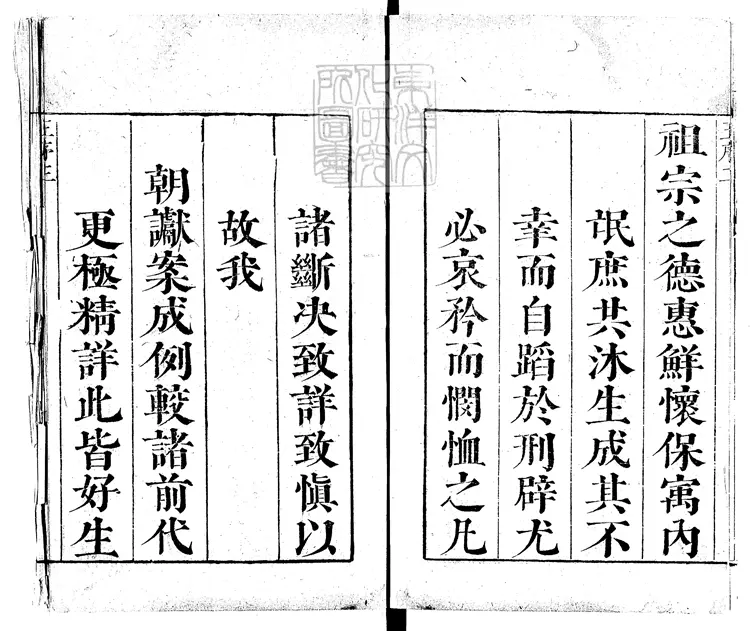 祖宗之德惠鮮懷保寓內
氓庶共沐生成其不
幸而自蹈於刑辟尤
必哀矜而憫恤之凡
諸斷决致詳致慎以
故我
朝讞案成例較諸前代
更極精詳此皆好生